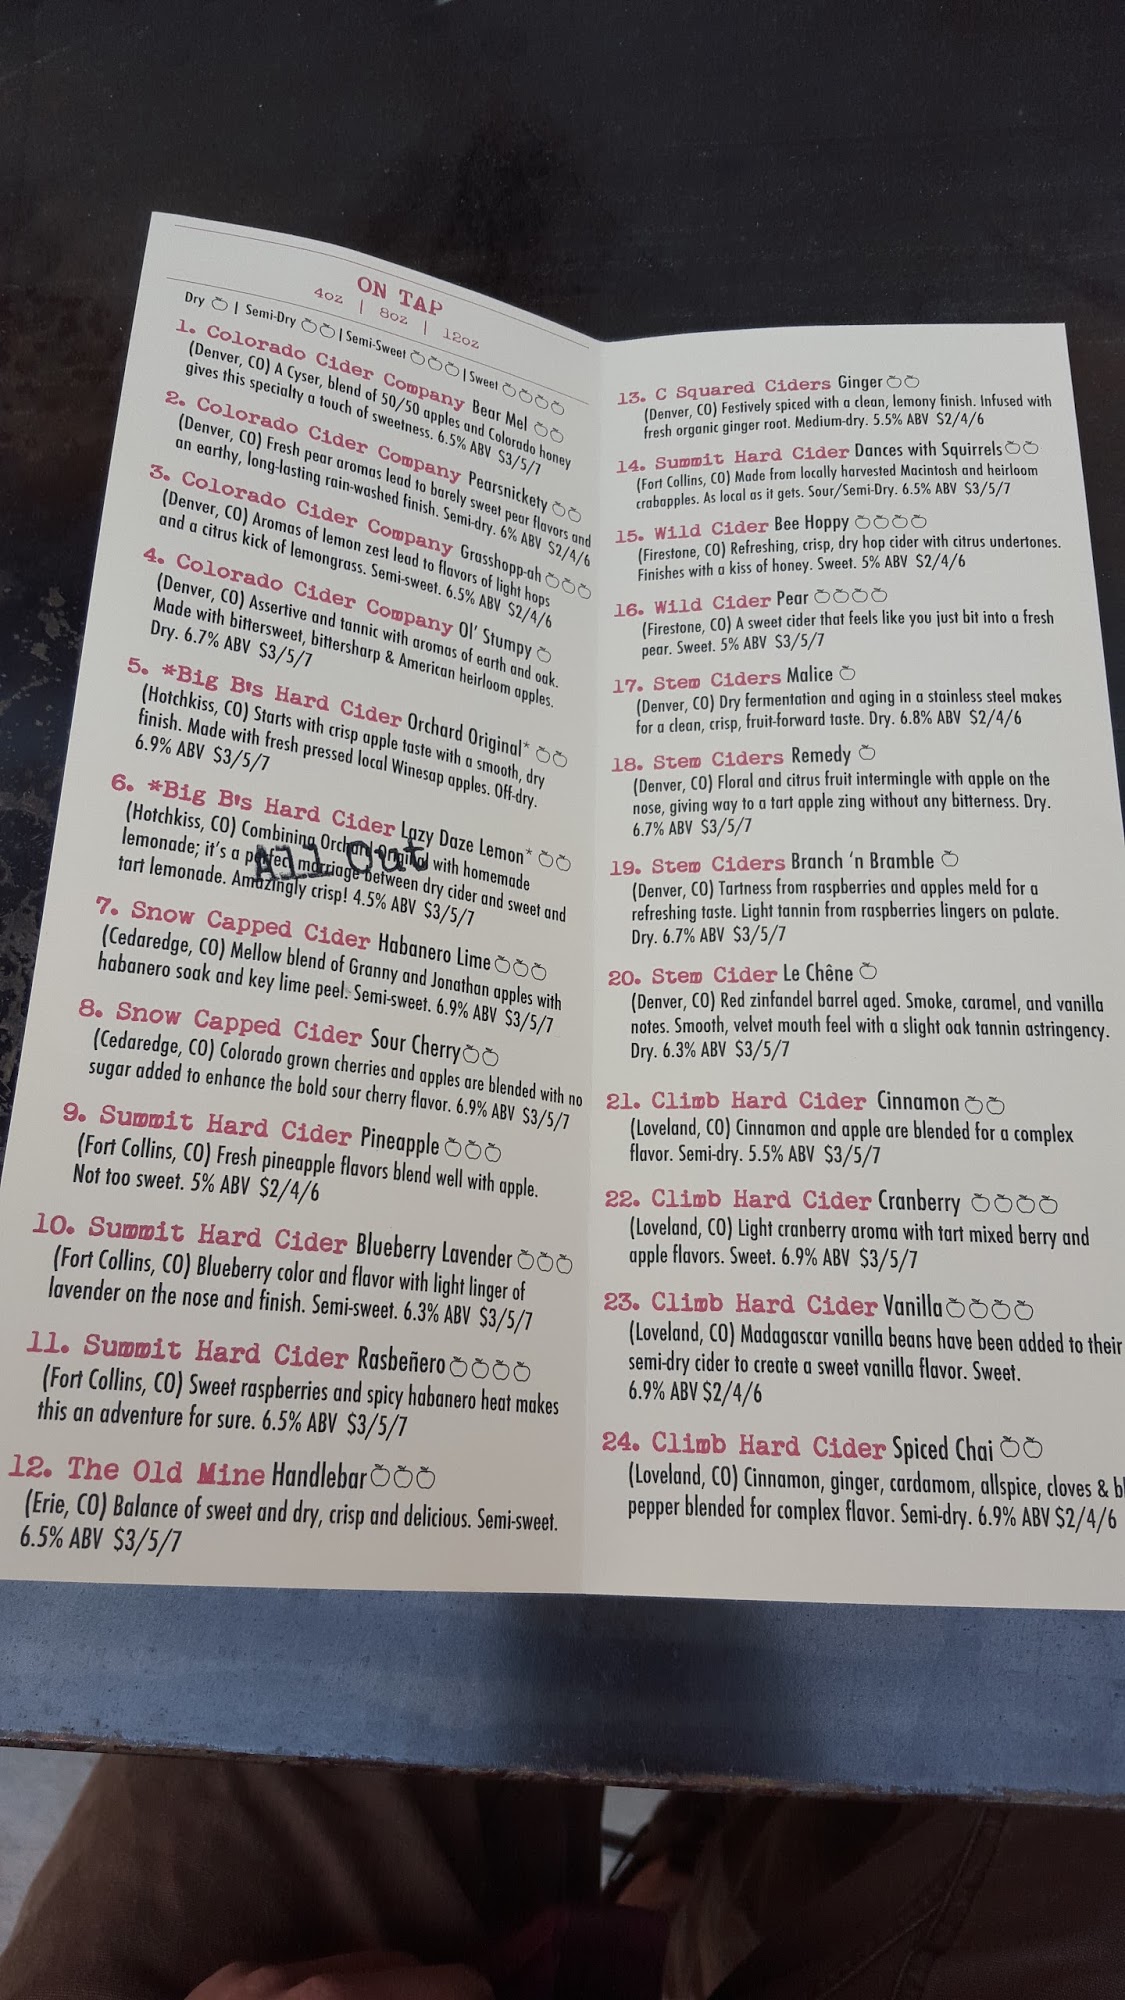 ON TAP
4oz | 8oz | 12oz
Dry | Semi-Dry | Semi-Sweet | Sweet
1. Colorado Cider Company Bear Mel
(Denver, CO) A Cyser, blend of 50/50 apples and Colorado honey
gives this specialty a touch of sweetness. 6.5% ABV $3/5/7
2. Colorado Cider Company Pearsnickety
(Denver, CO) Fresh pear aromas lead to barely sweet pear flavors and
an earthy, long-lasting rain-washed finish. Semi-dry. 6% ABV $2/4/6
3. Colorado Cider Company Grasshopp-ah
(Denver, CO) Aromas of lemon zest lead to flavors of light hops
and a citrus kick of lemongrass. Semi-sweet. 6.5% ABV $2/4/6
4. Colorado Cider Company Ol' Stumpy
(Denver, CO) Assertive and tannic with aromas of earth and oak.
Made with bittersweet, bittersharp & American heirloom apples.
Dry. 6.7% ABV $3/5/7
5. *Big B's Hard Cider Orchard Original*
(Hotchkiss, CO) Starts with crisp apple taste with a smooth, dry
finish. Made with fresh pressed local Winesap apples. Off-dry.
6.9% ABV $3/5/7
6. *Big B's Hard Cider Lazy Daze Lemon*
(Hotchkiss, CO) Combining Orchard Original with homemade
lemonade; it's a perfect marriage between dry cider and sweet and
tart lemonade. Amazingly crisp! 4.5% ABV $3/5/7
All Out
7. Snow Capped Cider Habanero Lime
(Cedaredge, CO) Mellow blend of Granny and Jonathan apples with
habanero soak and key lime peel. Semi-sweet. 6.9% ABV $3/5/7
8. Snow Capped Cider Sour Cherry
(Cedaredge, CO) Colorado grown cherries and apples are blended with no
sugar added to enhance the bold sour cherry flavor. 6.9% ABV $3/5/7
9. Summit Hard Cider Pineapple
(Fort Collins, CO) Fresh pineapple flavors blend well with apple.
Not too sweet. 5% ABV $2/4/6
10. Summit Hard Cider Blueberry Lavender
(Fort Collins, CO) Blueberry color and flavor with light linger of
lavender on the nose and finish. Semi-sweet. 6.3% ABV $3/5/7
11. Summit Hard Cider Rasbeñero
(Fort Collins, CO) Sweet raspberries and spicy habanero heat makes
this an adventure for sure. 6.5% ABV $3/5/7
12. The Old Mine Handlebar
(Erie, CO) Balance of sweet and dry, crisp and delicious. Semi-sweet.
6.5% ABV $3/5/7
13. C Squared Ciders Ginger
(Denver, CO) Festively spiced with a clean, lemony finish. Infused with
fresh organic ginger root. Medium-dry. 5.5% ABV $2/4/6
14. Summit Hard Cider Dances with Squirrels
(Fort Collins, CO) Made from locally harvested Macintosh and heirloom
crabapples. As local as it gets. Sour/Semi-Dry. 6.5% ABV $3/5/7
15. Wild Cider Bee Hoppy
(Firestone, CO) Refreshing, crisp, dry hop cider with citrus undertones.
Finishes with a kiss of honey. Sweet. 5% ABV $2/4/6
16. Wild Cider Pear
(Firestone, CO) A sweet cider that feels like you just bit into a fresh
pear. Sweet. 5% ABV $3/5/7
17. Stem Ciders Malice
(Denver, CO) Dry fermentation and aging in a stainless steel makes
for a clean, crisp, fruit-forward taste. Dry. 6.8% ABV $2/4/6
18. Stem Ciders Remedy
(Denver, CO) Floral and citrus fruit intermingle with apple on the
nose, giving way to a tart apple zing without any bitterness. Dry.
6.7% ABV $3/5/7
19. Stem Ciders Branch 'n Bramble
(Denver, CO) Tartness from raspberries and apples meld for a
refreshing taste. Light tannin from raspberries lingers on palate.
Dry. 6.7% ABV $3/5/7
20. Stem Cider Le Chêne
(Denver, CO) Red zinfandel barrel aged. Smoke, caramel, and vanilla
notes. Smooth, velvet mouth feel with a slight oak tannin astringency.
Dry. 6.3% ABV $3/5/7
21. Climb Hard Cider Cinnamon
(Loveland, CO) Cinnamon and apple are blended for a complex
flavor. Semi-dry. 5.5% ABV $3/5/7
22. Climb Hard Cider Cranberry
(Loveland, CO) Light cranberry aroma with tart mixed berry and
apple flavors. Sweet. 6.9% ABV $3/5/7
23. Climb Hard Cider Vanilla
(Loveland, CO) Madagascar vanilla beans have been added to their
semi-dry cider to create a sweet vanilla flavor. Sweet.
6.9% ABV $2/4/6
24. Climb Hard Cider Spiced Chai
(Loveland, CO) Cinnamon, ginger, cardamom, allspice, cloves &
pepper blended for complex flavor. Semi-dry. 6.9% ABV $2/4/6